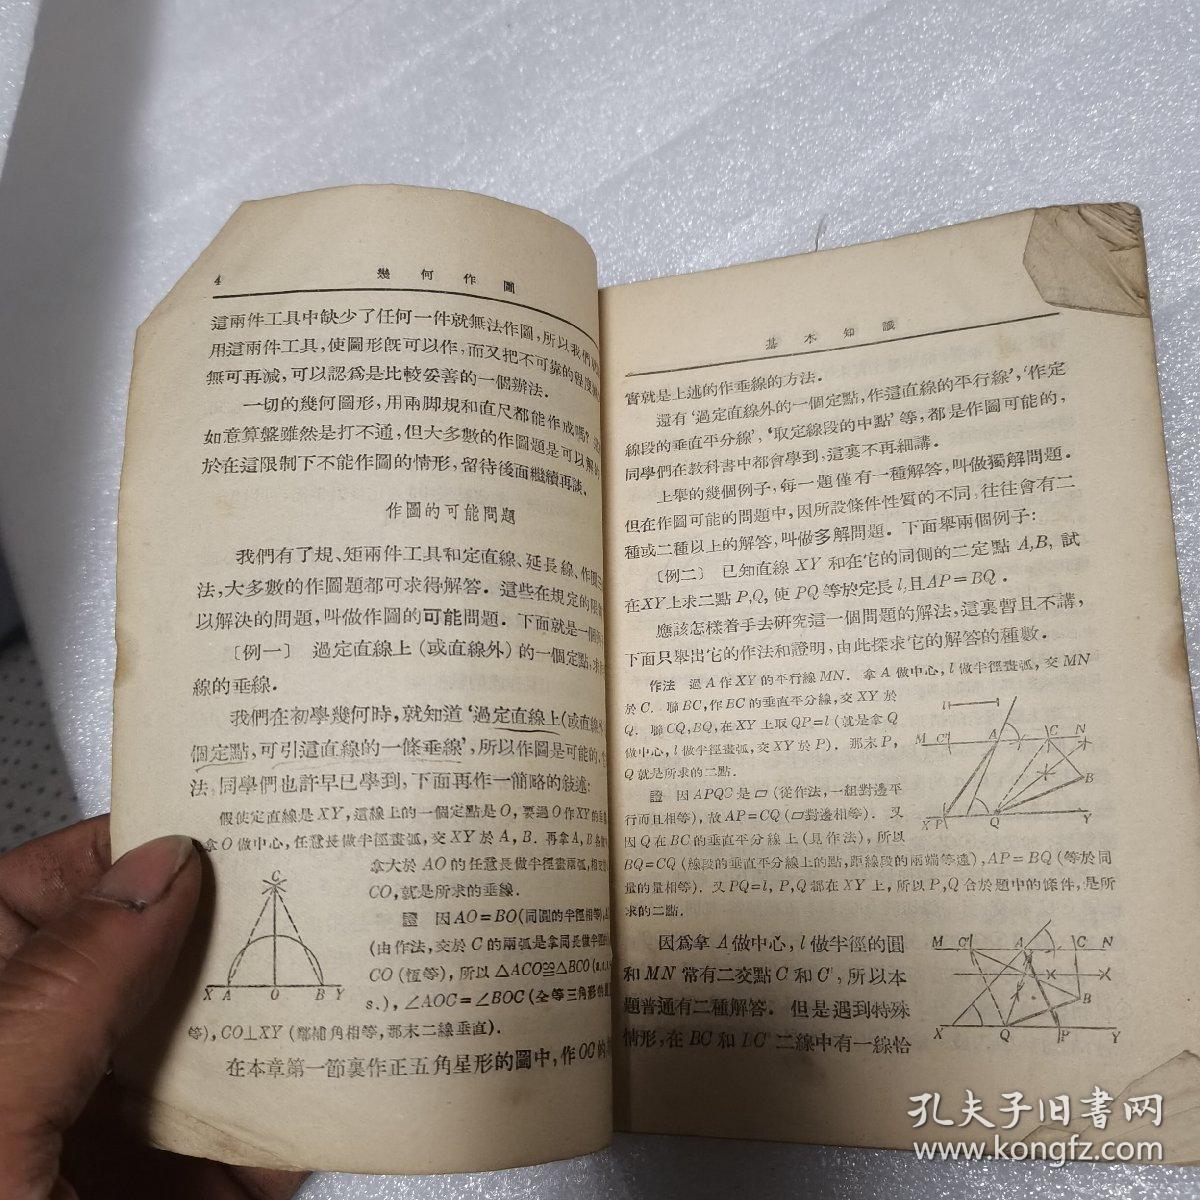 4
幾何作圖
這兩件工具中缺少了任何一件就無法作圖,所以我們
用這兩件工具,使圖形旣可以作,而又把不可靠的程度
無可再減,可以認爲是比較妥善的一個辦法.
一切的幾何圖形,用兩脚規和直尺都能作成嗎?
如意算盤雖然是打不通,但大多數的作圖題是可以解的
於在這限制下不能作圖的情形,留待後面繼續再談.
作圖的可能問題
我們有了規、矩兩件工具和定直線、延長線、作圓
法,大多數的作圖題都可求得解答.這些在規定的限
以解決的問題,叫做作圖的可能問題.下面就是一個
〔例一〕 過定直線上(或直線外)的一個定點,求
線的垂線.
我們在初學幾何時,就知道‘過定直線上(或直線
個定點,可引這直線的一條垂線’,所以作圖是可能的.
法,同學們也許早已學到,下面再作一簡略的敍述:
假使定直線是XY,這線上的一個定點是O,要過O作XY的
拿O做中心,任意長做半徑畫弧,交XY於A,B.再拿A,B
拿大於AO的任意長做半徑畫兩弧,相交
CO,就是所求的垂線.
證 因AO=BO(同圓的半徑相等),
(由作法,交於C的兩弧是拿同長做半徑
CO(恆等),所以△ACO≅△BCO(s.s.
s.),∠AOC=∠BOC(全等三角形的
等),CO⊥XY(鄰補角相等,那末二線垂直).
在本章第一節裏作正五角星形的圖中,作OC的
C
X A O B Y
基本知識
實就是上述的作垂線的方法.
還有‘過定直線外的一個定點,作這直線的平行線’,‘作定
線段的垂直平分線’,‘取定線段的中點’等,都是作圖可能的,
同學們在教科書中都會學到,這裏不再細講.
上舉的幾個例子,每一題僅有一種解答,叫做獨解問題.
但在作圖可能的問題中,因所設條件性質的不同,往往會有二
種或二種以上的解答,叫做多解問題.下面舉兩個例子:
〔例二〕 已知直線XY和在它的同側的二定點A,B,試
在XY上求二點P,Q,使PQ等於定長l,且AP=BQ.
應該怎樣着手去硏究這一個問題的解法,這裏暫且不講,
下面只舉出它的作法和證明,由此探求它的解答的種數.
作法 過A作XY的平行線MN.拿A做中心,l做半徑畫弧,交MN
於C.聯BC,作BC的垂直平分線,交XY於
Q.聯CQ,BQ,在XY上取QP=l(就是拿Q
做中心,l做半徑畫弧,交XY於P).那末P,
Q就是所求的二點.
證 因APQC是▱(從作法,一組對邊平
行而且相等),故AP=CQ(▱對邊相等).又
因Q在BC的垂直平分線上(見作法),所以
BQ=CQ(線段的垂直平分線上的點,距線段的兩端等遠),AP=BQ(等於同
量的量相等).又PQ=l,P,Q都在XY上,所以P,Q合於題中的條件,是所
求的二點.
l
M C' A C N
B
X P Q Y
因爲拿A做中心,l做半徑的圓
和MN常有二交點C和C',所以本
題普通有二種解答.但是遇到特殊
情形,在BC和BC'二線中有一線恰
M C' A C N
B
X Q P Y
孔夫子旧书网
www.kongfz.com